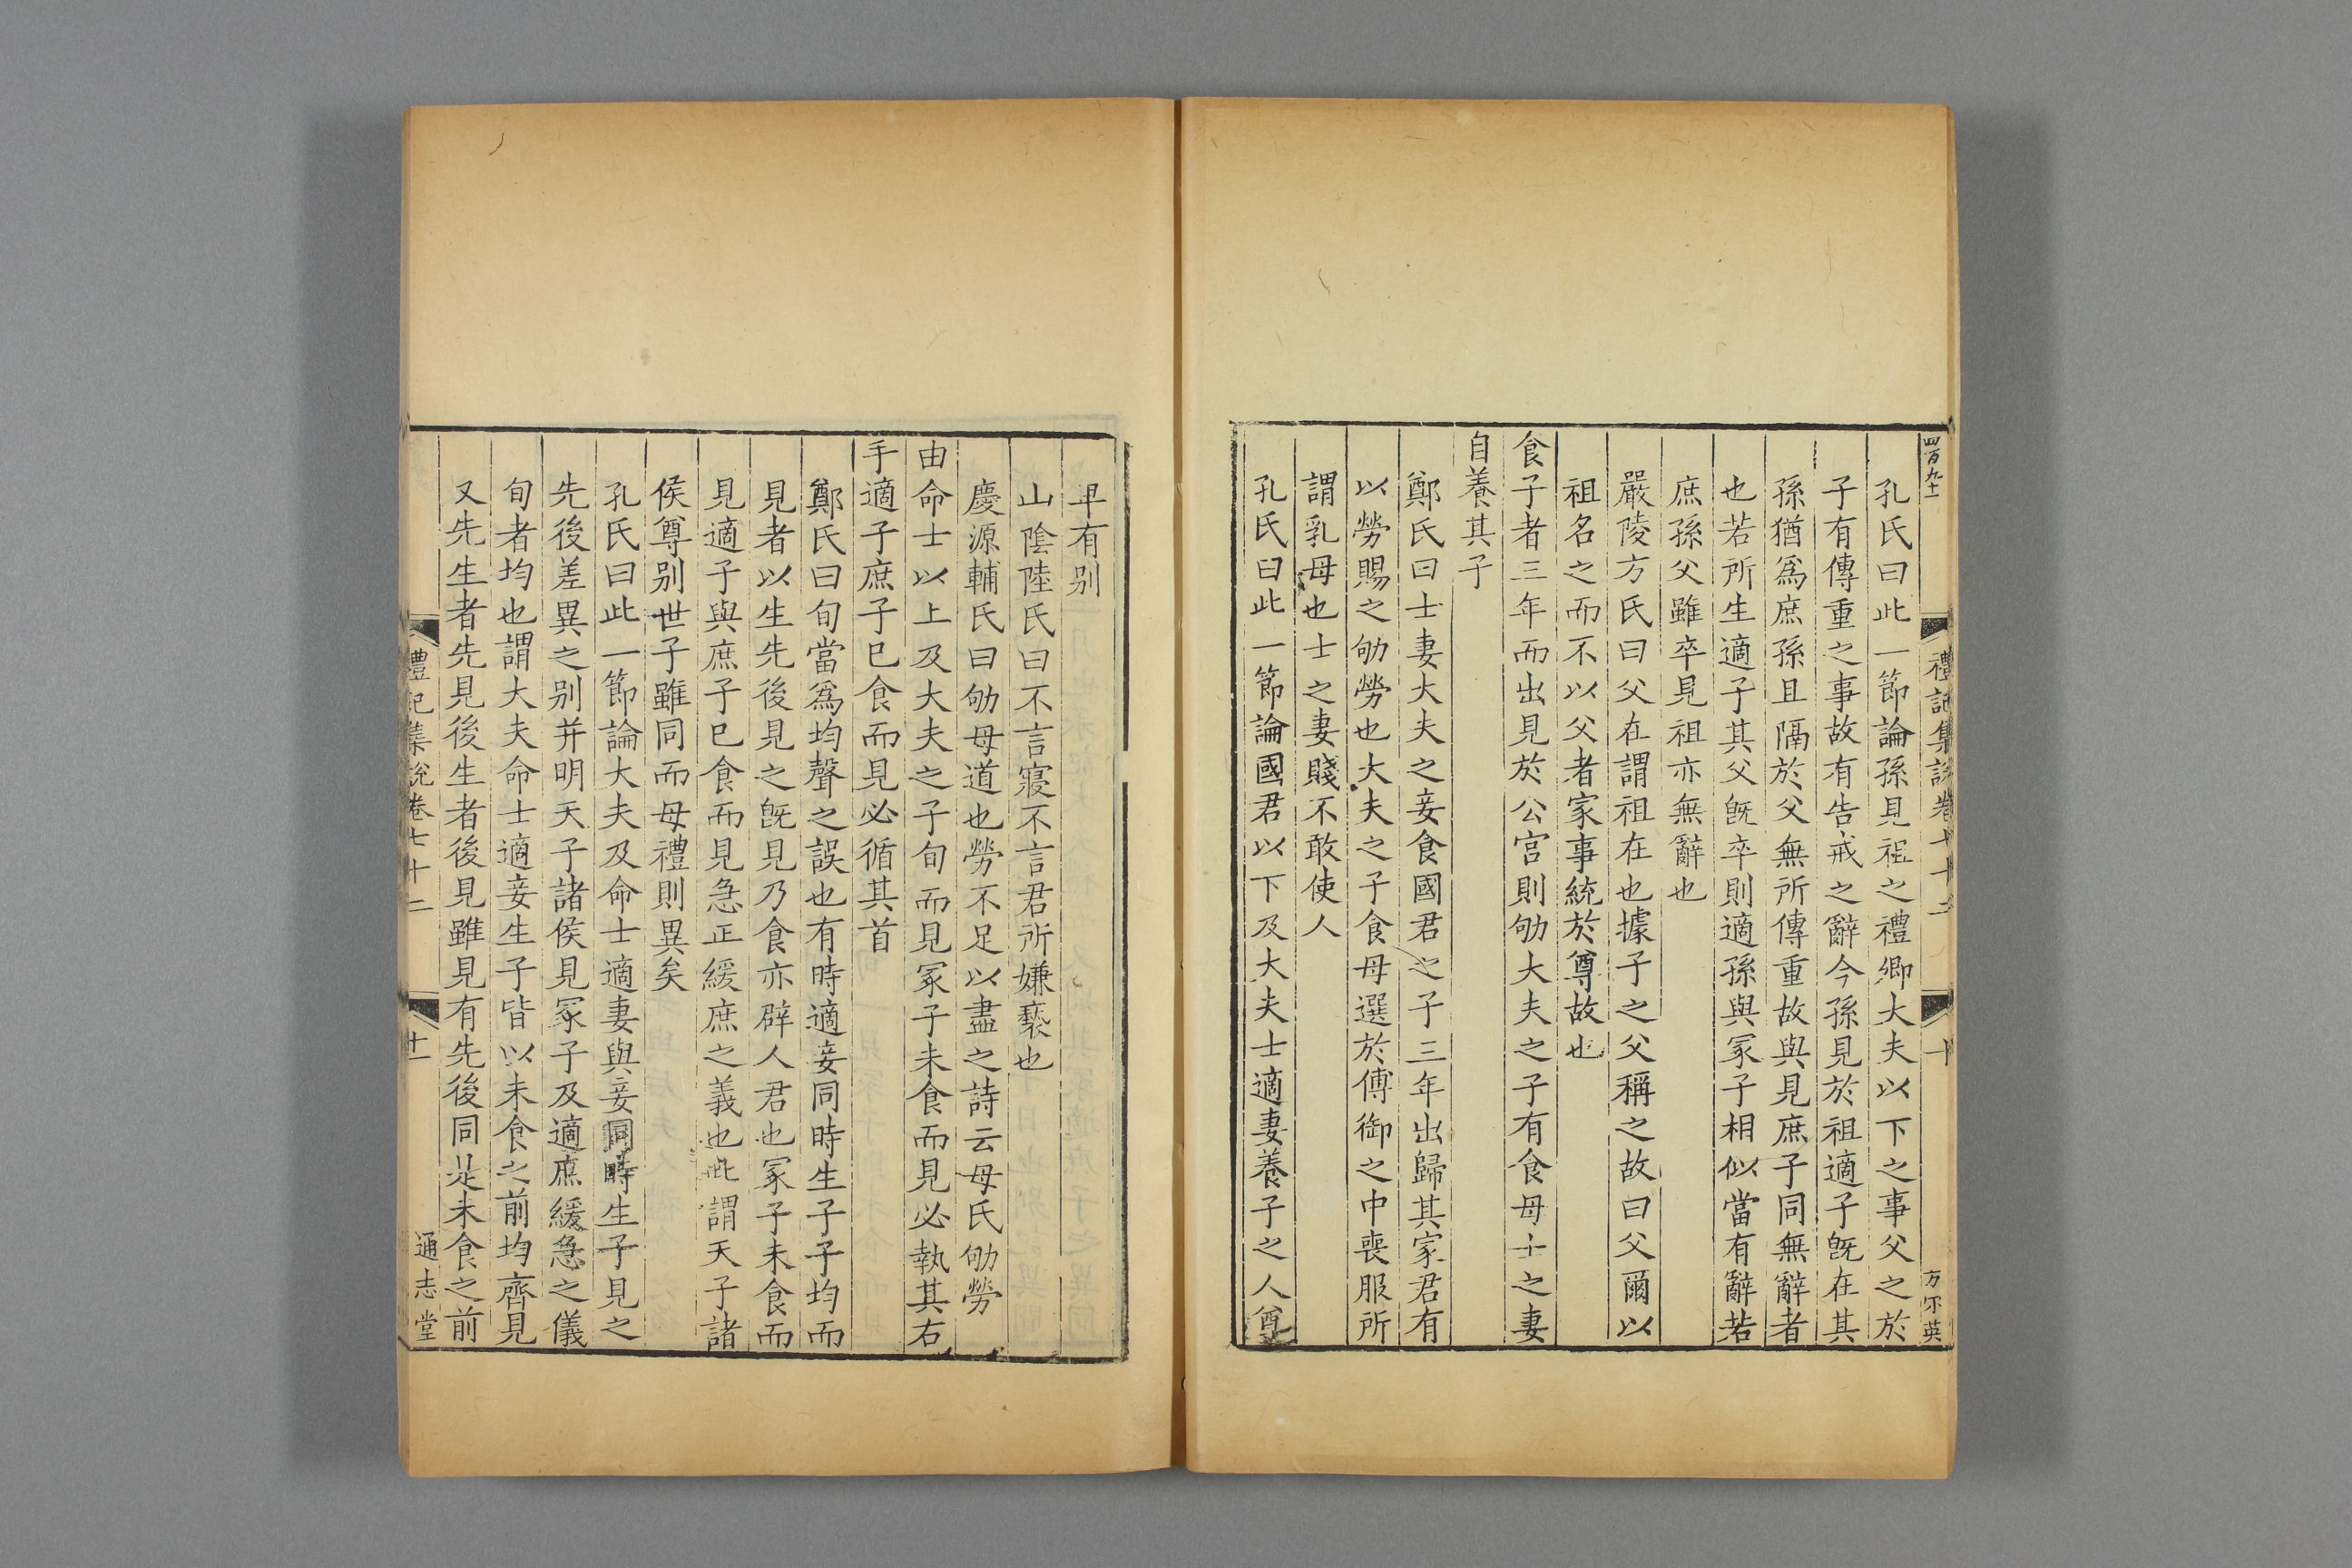 四百九十
禮記集說卷七十二
十
孔氏曰此一節論孫見祖之禮卿大夫以下之事父之於
子有傳重之事故有告戒之辭今孫見於祖適子旣在其
孫猶爲庶孫且隔於父無所傳重故與見庶子同無辭者
也若所生適子其父旣卒則適孫與冢子相似當有辭若
庶孫父雖卒見祖亦無辭也
嚴陵方氏曰父在謂祖在也據子之父稱之故曰父爾以
祖名之而不以父者家事統於尊故也
食子者三年而出見於公宮則劬大夫之子有食母士之妻
自養其子
鄭氏曰士妻大夫之妾食國君之子三年出歸其家君有
以勞賜之劬勞也大夫之子食母選於傅御之中喪服所
謂乳母也士之妻賤不敢使人
孔氏曰此一節論國君以下及大夫士適妻養子之人尊
卑有别
山陰陸氏曰不言寢不言君所嫌褻也
慶源輔氏曰劬母道也勞不足以盡之詩云母氏劬勞
由命士以上及大夫之子旬而見冢子未食而見必執其右
手適子庶子已食而見必循其首
鄭氏曰旬當爲均聲之誤也有時適妾同時生子子均而
見者以生先後見之旣見乃食亦辟人君也冢子未食而
見適子與庶子已食而見急正緩庶之義也此謂天子諸
侯尊别世子雖同而母禮則異矣
孔氏曰此一節論大夫及命士適妻與妾同時生子見之
先後差異之别并明天子諸侯見冢子及適庶緩急之儀
旬者均也謂大夫命士適妾生子皆以未食之前均齊見
又先生者先見後生者後見雖見有先後同是未食之前
禮記集說卷七十二
十一
通志堂